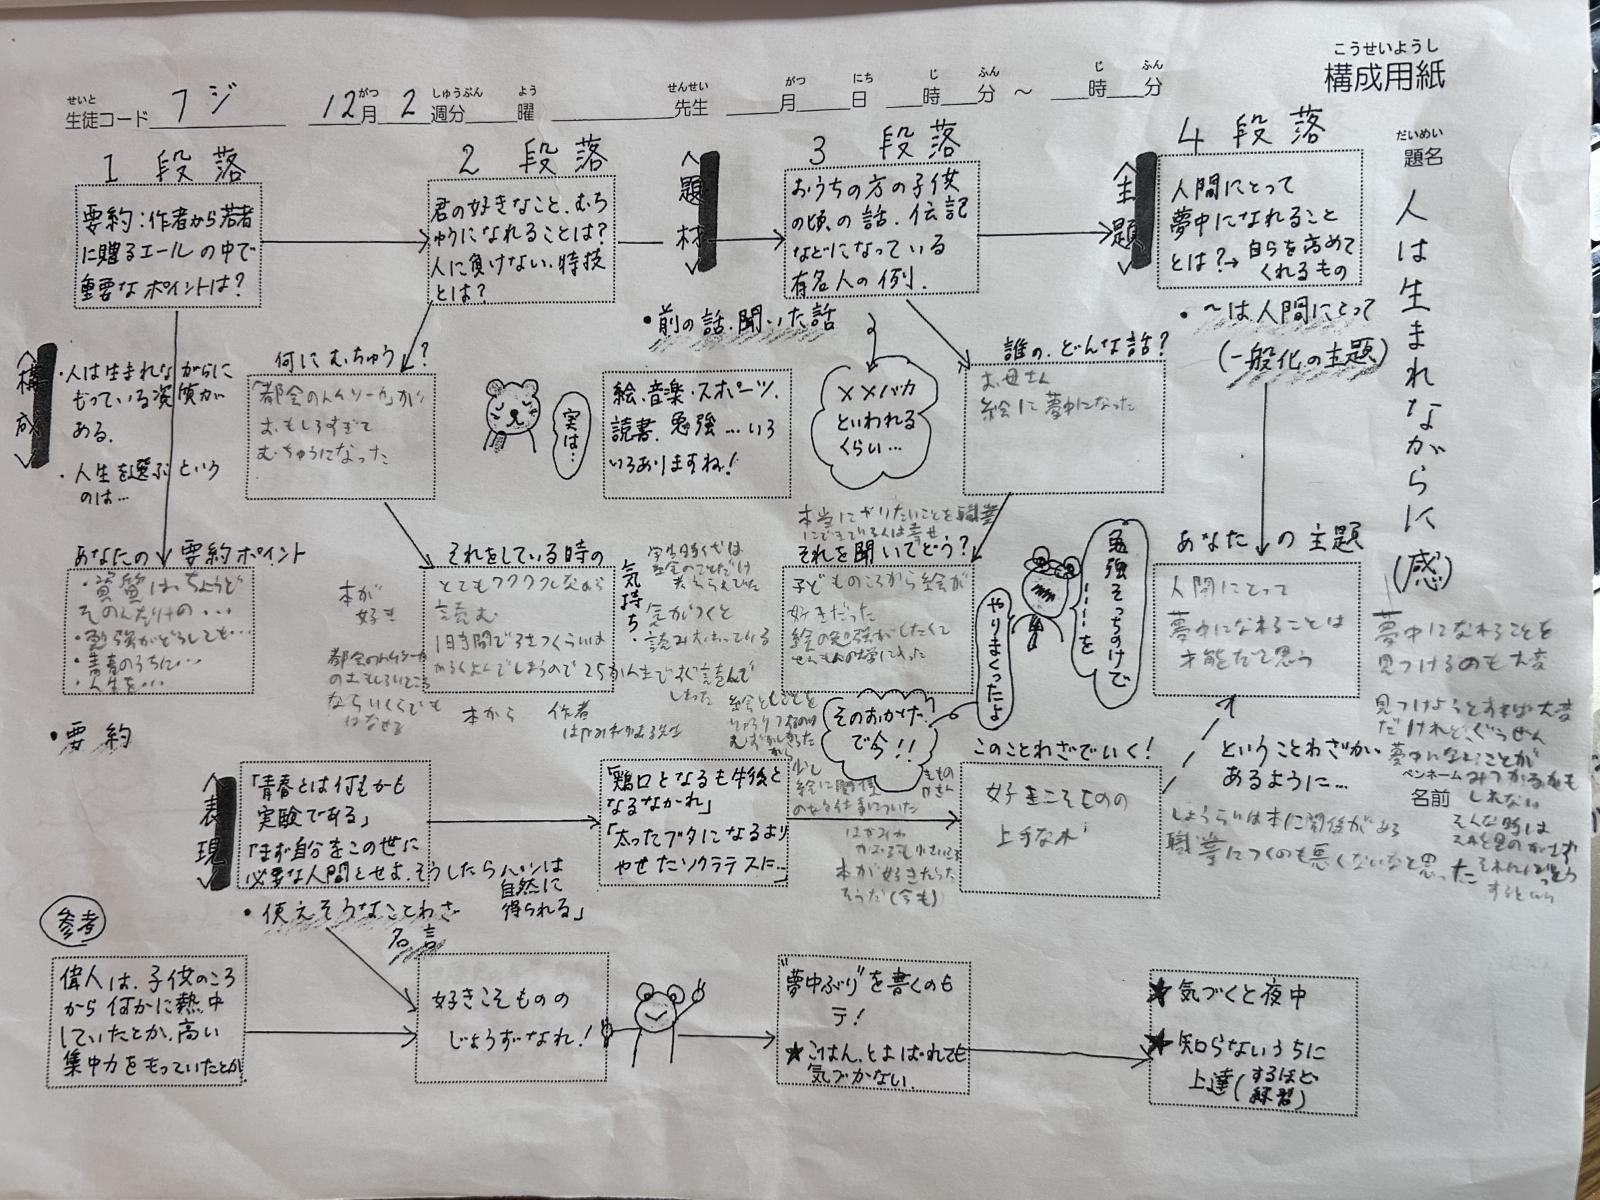 こうせいようし
構成用紙
せいと
生徒コード フジ
がつ しゅうぶん よう せんせい がつ にち じ ふん じ ふん
12月 2 週分 曜 先生 月 日 時 分 ～ 時 分
だいめい
題名
人は生まれながらに(感)
1 段落
要約:作者から若者
に贈るエールの中で
重要なポイントは?
2 段落
君の好きなこと、むち
ゅうになれることは?
人に負けない、特技
とは?
<題材>
3 段落
おうちの方の子供
の頃の話、伝記
などになっている
有名人の例.
<主題>
4 段落
人間にとって
夢中になれること
とは?→自らを高めて
くれるもの
・前の話・聞いた話
・~は人間にとって
(一般化の主題)
<構成>
・人は生まれながらに
もっている資質が
ある.
・人生を選ぶという
のは…
何にむちゅう?
「都会のトムソーヤ」が
おもしろすぎて
むちゅうになった
実は…
絵・音楽・スポーツ、
読書、勉強…いろ
いろありますね!
××バカ
といわれる
くらい…
誰の、どんな話?
お母さん
絵に夢中になった
あなたの要約ポイント
・資質は、ちょうど
そのんだけの…
・勉強がどうしても…
・青春のうちに…
・人生を…
それをしている時の
気持ち.
とてもワクワクしながら
読む
本が
好き
都会のトムソーヤ
のおもしろいところ
ならいくらでも
はなせる
本から
作者
気がつくと
読みおわっている
本当にやりたいことを職業
にできている人は幸せ
それを聞いてどう?
子どものころから絵が
好きだった
絵の勉強がしたくて
せんもんの大学に入った
勉強そっちのけで
……を
やりまくったよ
そのおかげ
で今!!
あなたの主題
人間にとって
夢中になれることは
才能だと思う
夢中になれることを
見つけるのも大変
見つけようとすれば大変
だけれど、ぐうぜん
夢中になることが
みつかるかも
しれない
そんな時は
ということわざが
あるように…
ペンネーム
名前
・要約
<表現>
「青春とは何もかも
実験である」
「まず自分をこの世に
必要な人間とせよ.そうしたらパンは
自然に
得られる」
・使えそうなことわざ
名言
「鶏口となるも牛後と
なるなかれ」
「太ったブタになるより
やせたソクラテスに…
少し
絵に関係
本が好きだった
そうだ(今も)
このことわざでいく!
好きこそものの
上手なれ
しょうらいは本に関係がある
職業につくのも悪くないなと思った
参考
偉人は、子供のころ
から何かに熱中
していたとか、高い
集中力をもっていたとか.
好きこそものの
じょうずなれ!
"夢中ぶり"を書くのも
テ!
★ごはん、とよばれても
気づかない.
★気づくと夜中
★知らないうちに
上達(するほど
練習)